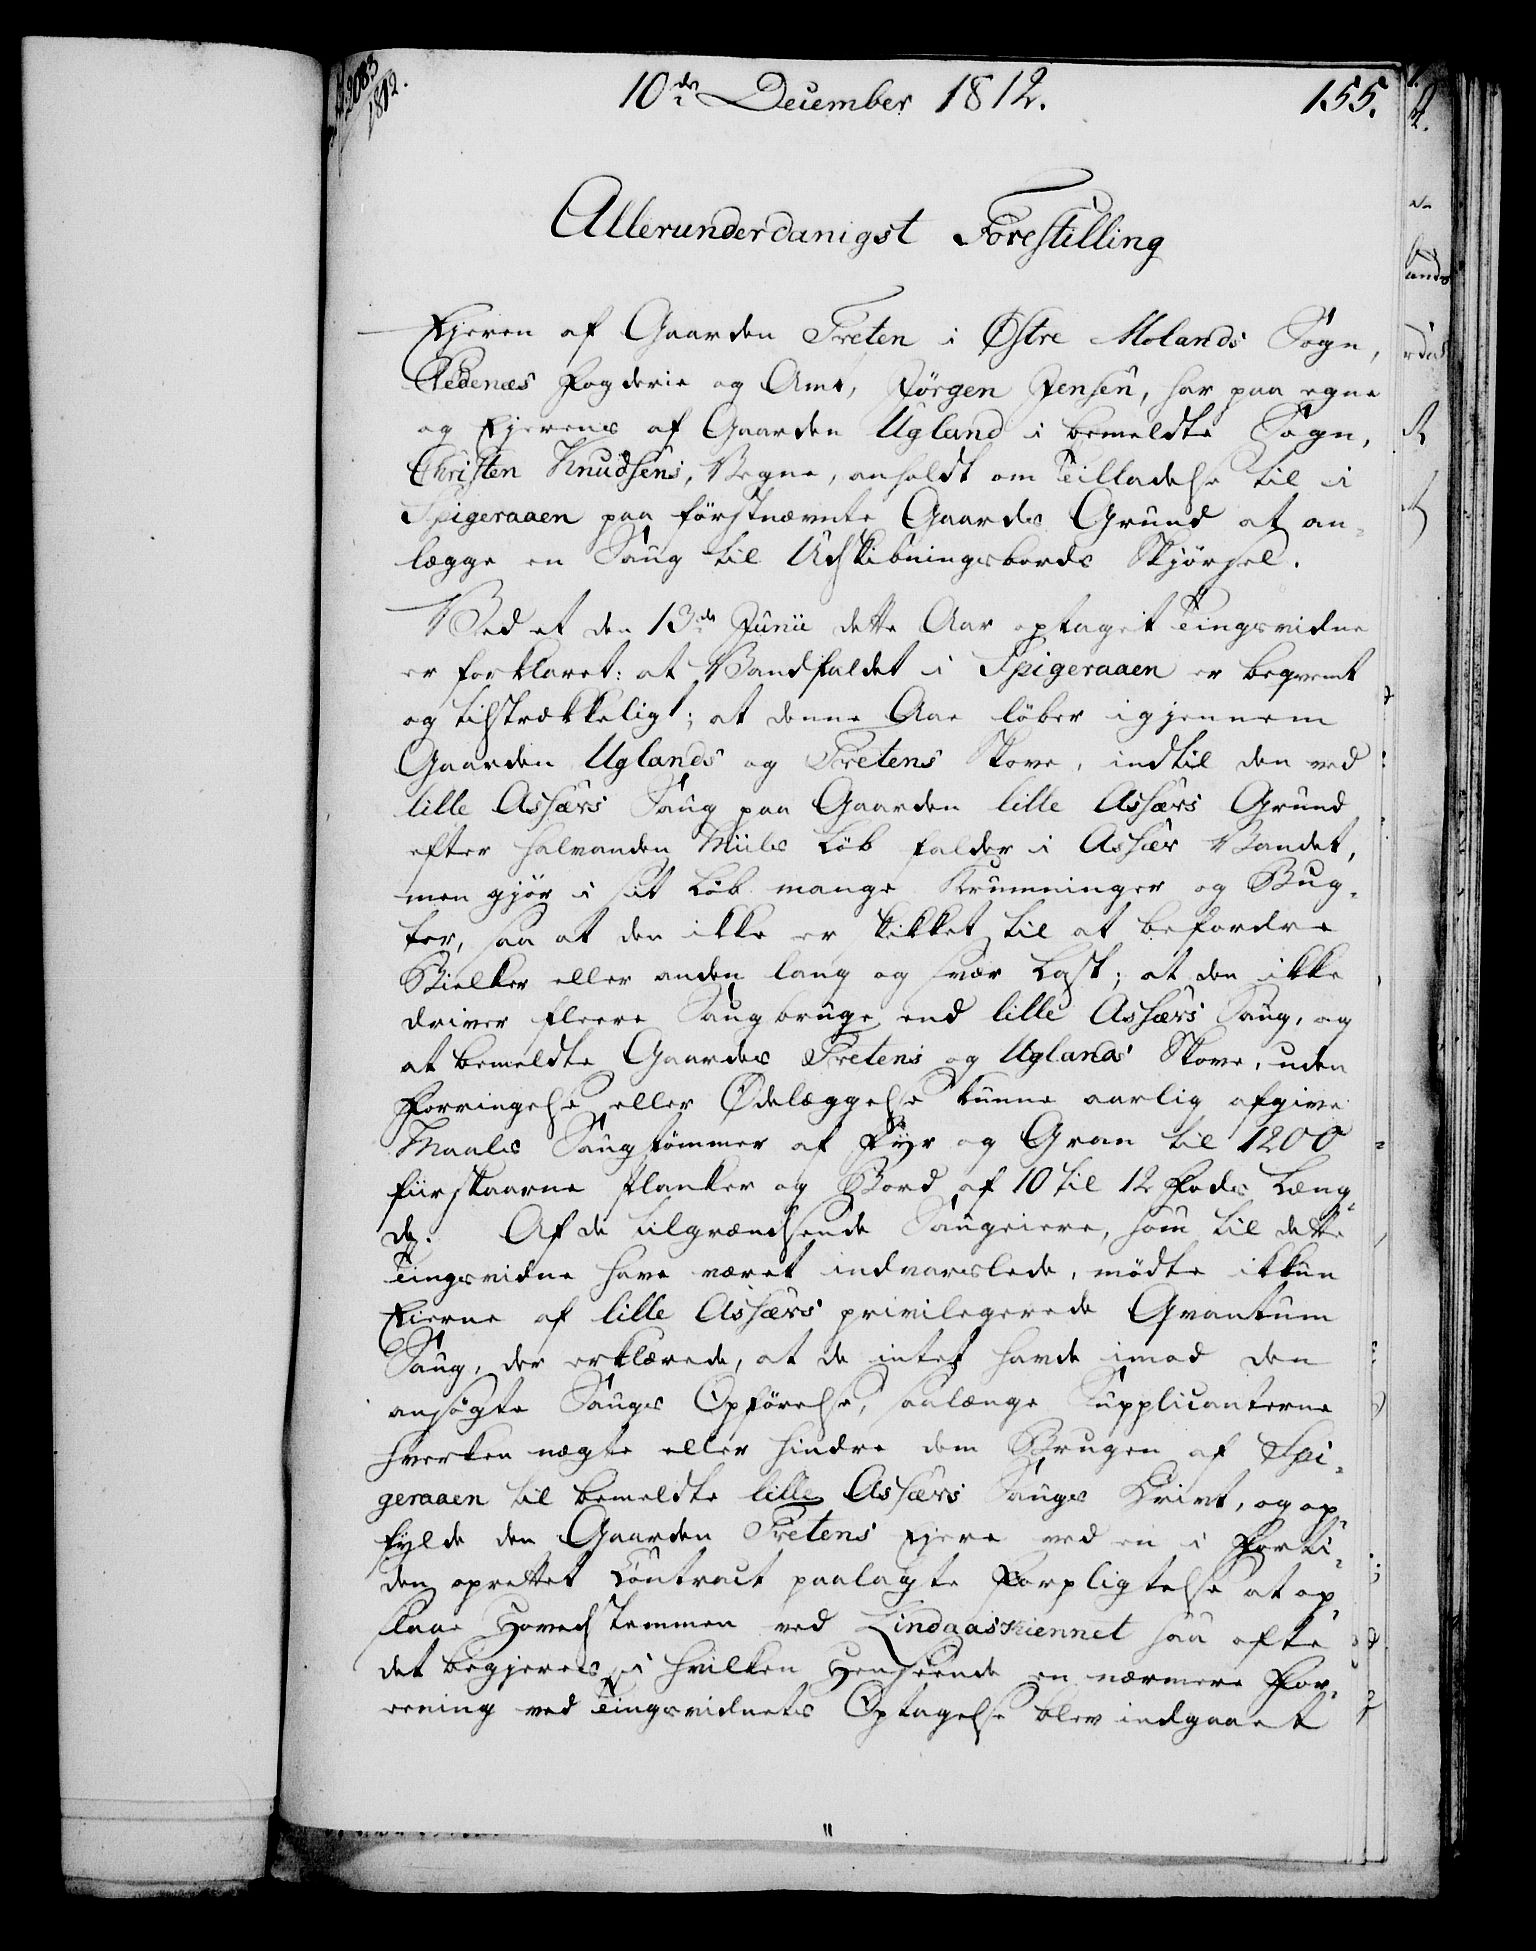 2083
1812.
10de December 1812.
155.
Allerunderdanigst Forestilling
Ejeren af Gaarden Treten i Østre Molands Sogn,
Nedenæs Fogderie og Amt, Jørgen Jensen, har paa egne
og Ejerens af Gaarden Ugland i bemeldte Sogn,
Christen Knudsens, Vegne, anholdt om Tilladelse til i
Spigeraaen paa førstnævnte Gaards Grund at an-
lægge en Saug til Udskibningsbords Skjørsel.
Ved et den 13de Junii dette Aar optaget Tingsvidne
er forklaret: at Vandfaldet i Spigeraaen er beqvemt
og tilstrækkeligt; at denne Aae løber igjennem
Gaarden Uglands og Tretens Skove, indtil den ved
lille Assærs Saug paa Gaarden lille Assærs Grund
efter halvanden Miils Løb falder i Assær Vandet,
men gjør i sit Løb mange Krumninger og Bug-
ter, saa at den ikke er skikket til at befordre
Bielker eller anden lang og svær Last; at den ikke
driver fleere Saugbruge end lille Assærs Saug, og
at bemeldte Gaarde Tretens og Uglands Skove, uden
Forringelse eller Ødelæggelse kunne aarlig afgive
Maals Saugtømmer af Fyr og Gran til 1200
fiirskaarne Planker og Bord af 10 til 12 Fods Læng-
de. Af de tilgrændsende Saugeiere, som til dette
Tingsvidne have været indvarslede, mødte ikkun
Eierne af lille Assærs privilegerede Qvantum
Saug, der erklærede, at de intet havde imod den
ansøgte Saugs Opførelse, saalænge Supplicanterne
hverken nægte eller hindre dem Brugen af Spi-
geraaen til bemeldte lille Assærs Saugs Drivt, og op-
fylde den Gaarden Tretens Ejere ved en i Forti-
den oprettet Contract paalagte Forpligtelse at op-
slaae Hoveddæmmen ved Lindaaskiennet saa ofte
det begjeres, i hvilken Henseende en nærmere For-
eening ved Tingsvidnets Optagelse blev indgaaet